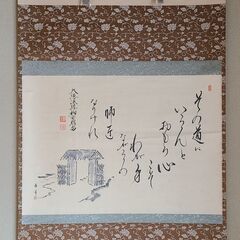 その道に
いらんと
おもふ心
こそ
わが身
ながらの
師匠
なりけれ